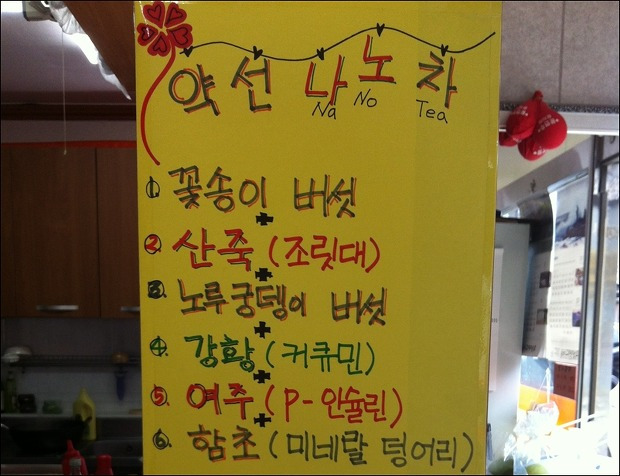 약선 나노차
Na No Tea
① 꽃송이 버섯
+
② 산죽 (조릿대)
+
③ 노루궁뎅이 버섯
+
④ 강황 (커큐민)
+
⑤ 여주 (P-인슐린)
+
⑥ 함초 (미네랄 덩어리)